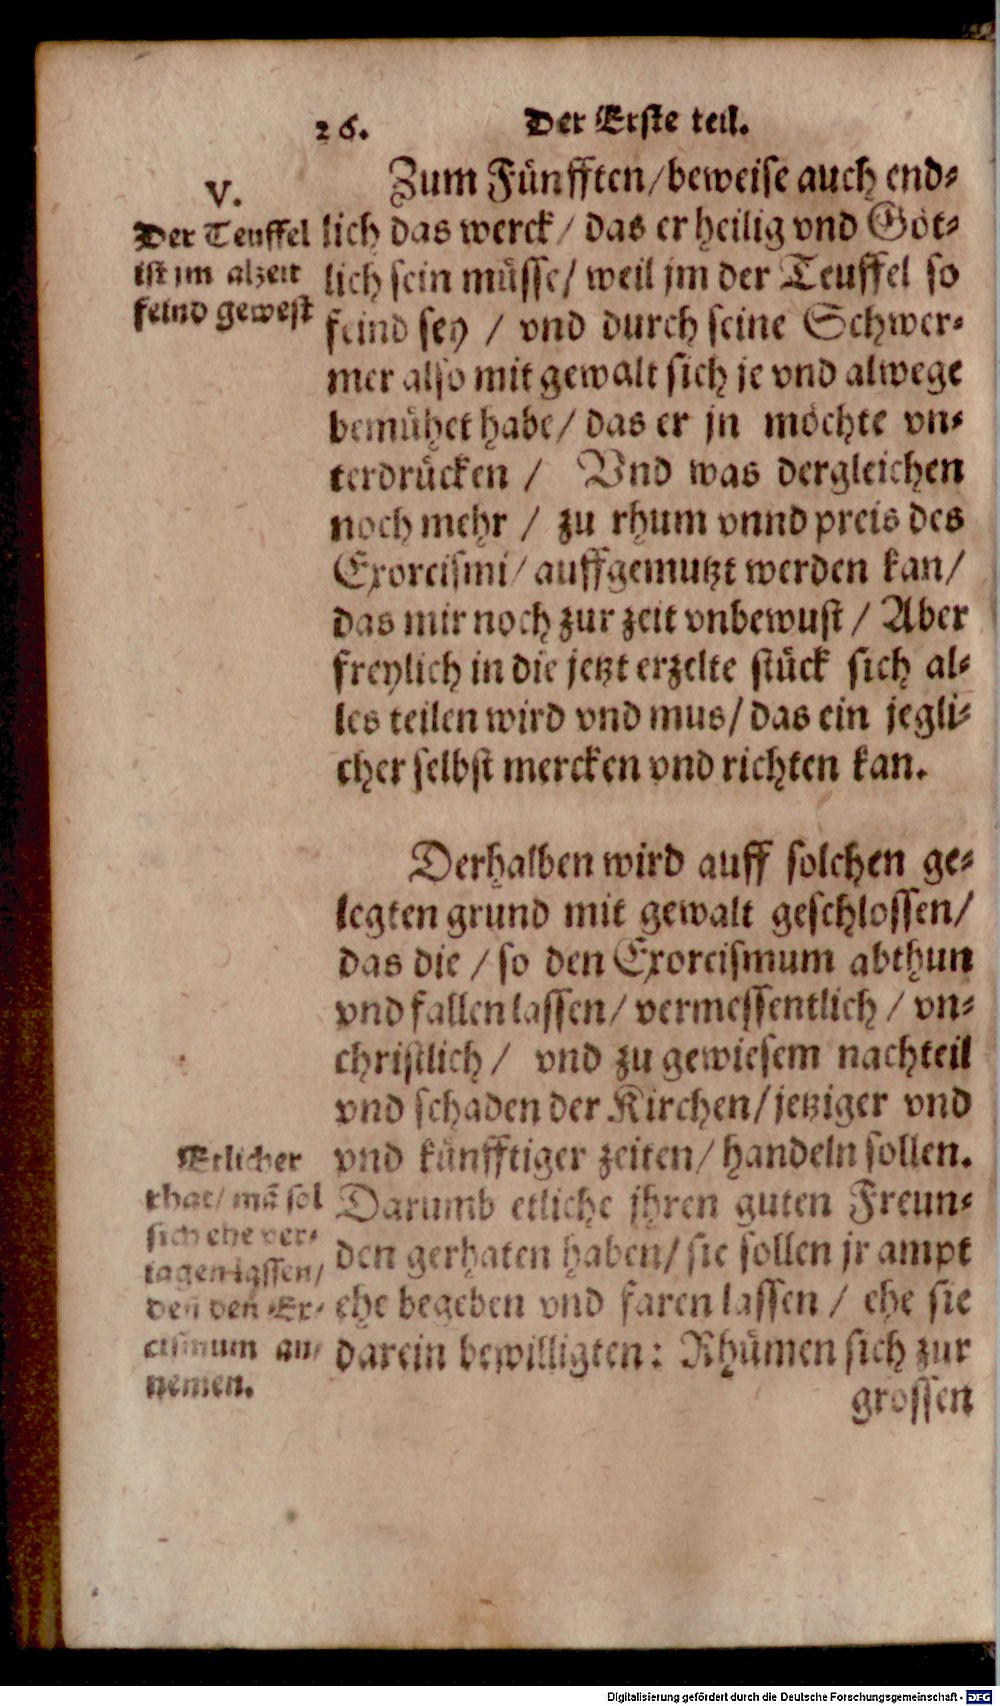 26. Der Erste teil.
V.
Der Teuffel
ist jm alzeit
feind gewest
Zum Fünfften/beweise auch end⸗
lich das werck/ das er heilig vnd Göt⸗
lich sein müsse/ weil jm der Teuffel so
feind sey / vnd durch seine Schwer⸗
mer also mit gewalt sich je vnd alwege
bemühet habe/ das er jn möchte vn⸗
terdrücken / Vnd was dergleichen
noch mehr / zu rhum vnnd preis des
Exorcismi/ auffgemutzt werden kan/
das mir noch zur zeit vnbewust / Aber
freylich in die jetzt erzelte stück sich al⸗
les teilen wird vnd mus/ das ein jegli⸗
cher selbst mercken vnd richten kan.
Derhalben wird auff solchen ge⸗
legten grund mit gewalt geschlossen/
das die / so den Exorcismum abthun
vnd fallen lassen/ vermessentlich / vn⸗
christlich / vnd zu gewiesem nachteil
vnd schaden der Kirchen/ jetziger vnd
vnd künfftiger zeiten/ handeln sollen.
Darumb etliche jhren guten Freun⸗
den gerhaten haben/ sie sollen jr ampt
ehe begeben vnd faren lassen / ehe sie
darein bewilligten: Rhümen sich zur
Etlicher
rhat/ mã sol
sich ehe ver⸗
iagen lassen/
den den Ex⸗
cismum an⸗
nemen.
grossen
Digitalisierung gefördert durch die Deutsche Forschungsgemeinschaft - DFG